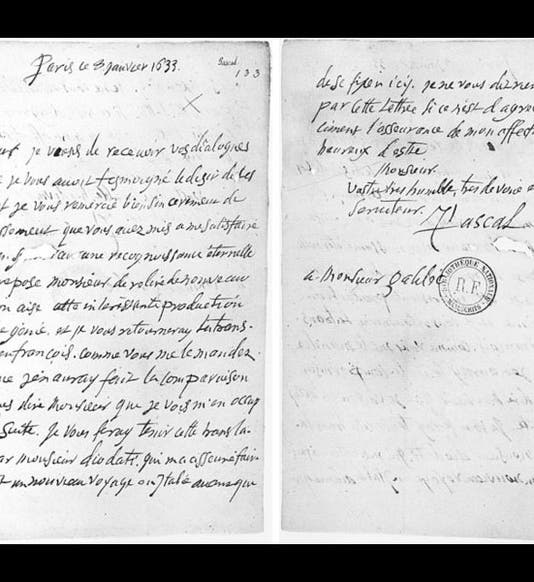 Paris le 8 janvier 1633.
Pascal
133
je viens de recevoir vos dialogues
je vous avoit tesmoigné le desir de les
et je vous remercie bien sincerement de
que vous avez mis a me satisfaire
une recognoissance éternelle
propose monsieur de relire de nouveau
aise production
genie. et je vous retourneray la trans-
en françois. comme vous me le mandez.
que j'en auray fait la comparaison
dire Monsieur que je vois m'en occup
suite. Je vous feray tenir cette transla-
par monsieur diodati. qui m'a asseuré faire
un nouveau voyage en Italie avant que
ici. je ne vous diz rien
par cette lettre si ce n'est d'agreer
l'asseurance de mon affect
heureux d'estre
Monsieur.
Vostre tres humble, tres devoué e
Serviteur. Pascal
a Monsieur Galilée
BIBLIOTHEQUE NATIONALE
R.F
MANUSCRITS